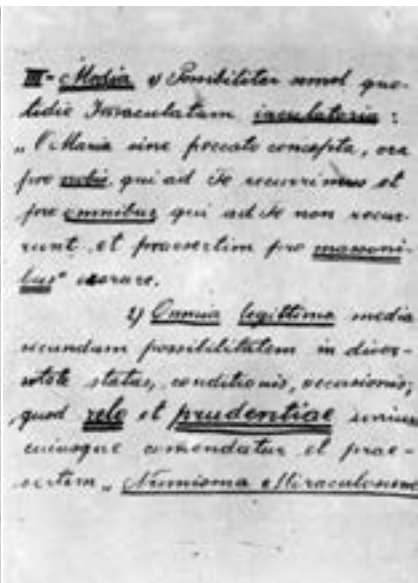 III – Media 1) Possibiliter semel quo-
tidie Immaculatam iaculatoria :
„O Maria sine peccato concepta, ora
pro nobis, qui ad Te recurrimus et
pro omnibus qui ad Te non recur-
runt, et praesertim pro massoni-
bus" exorare.
2) Omnia legittima media
secundum possibilitatem in diver-
sitate status, conditionis, occasionis,
quod zelo et prudentiae
cuiusque comendatur et prae-
sertim „Numisma Miraculosum